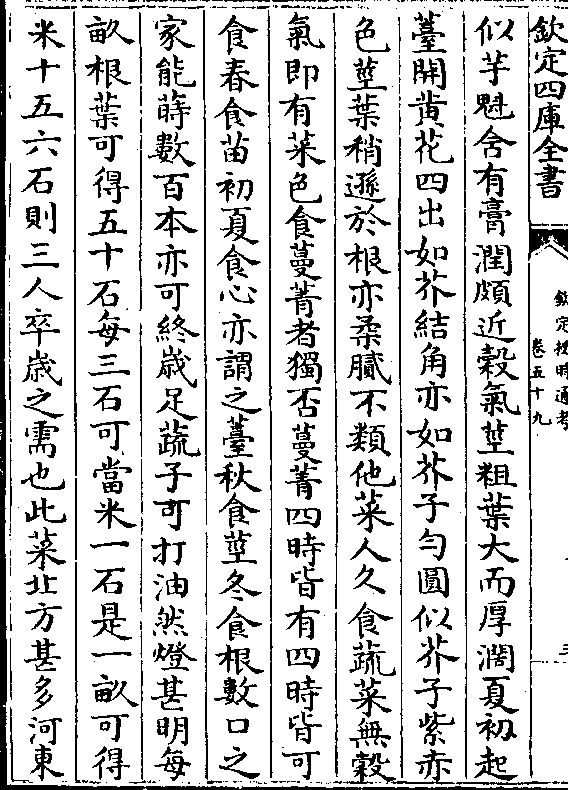 欽定四庫全書
欽定授時通考
卷五十九
三
似芋魁含有膏潤頗近穀氣莖粗葉大而厚濶夏初起
薹開黄花四出如芥結角亦如芥子勻圓似芥子紫赤
色莖葉稍遜於根亦柔膩不類他菜人久食蔬菜無穀
氣即有菜色食蔓菁者獨否蔓菁四時皆有四時皆可
食春食苗初夏食心亦謂之薹秋食莖冬食根數口之
家能蒔數百本亦可終歳足蔬子可打油然燈甚明每
畝根葉可得五十石每三石可當米一石是一畝可得
米十五六石則三人卒歳之需也此菜北方甚多河東